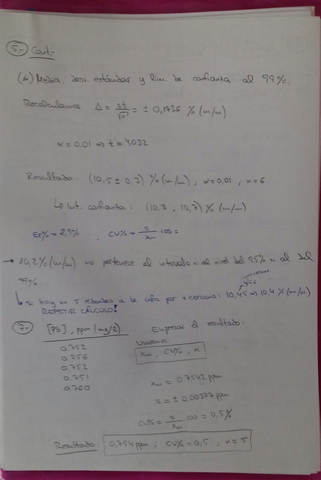 5.- Cont.-
(A) Media, desv. estándar y lím. de confianza al 99%.
Recalculamos Δ = st/√n = ± 0,1736 % (m/m)
α = 0.01 ⇒ t = 4.032
Resultado: (10,5 ± 0,2) % (m/m), α = 0,01, n = 6
Int. confianza: (10,3, 10,7) % (m/m)
Er% = 2,9%, CV% = s/xm 100 =
→ 10,2 % (m/m) no pertenece al intervalo ni al nivel del 95% ni al del 99%
hay 5 redondeo a la cifra par + cercana: 10,45 ⇒ 10,4 % (m/m)
REPETIR CÁLCULO!
7.- [Pb], ppm (mg/L) Expresar el resultado:
0.752
0.756
0.752
0.751
0.760
Usaremos:
xm, CV%, n
xm = 0.7542 ppm
s = ± 0.00377 ppm
CV% = s/xm 100 = 0,5%
Resultado: 0,754 ppm, CV% = 0,5, n = 5